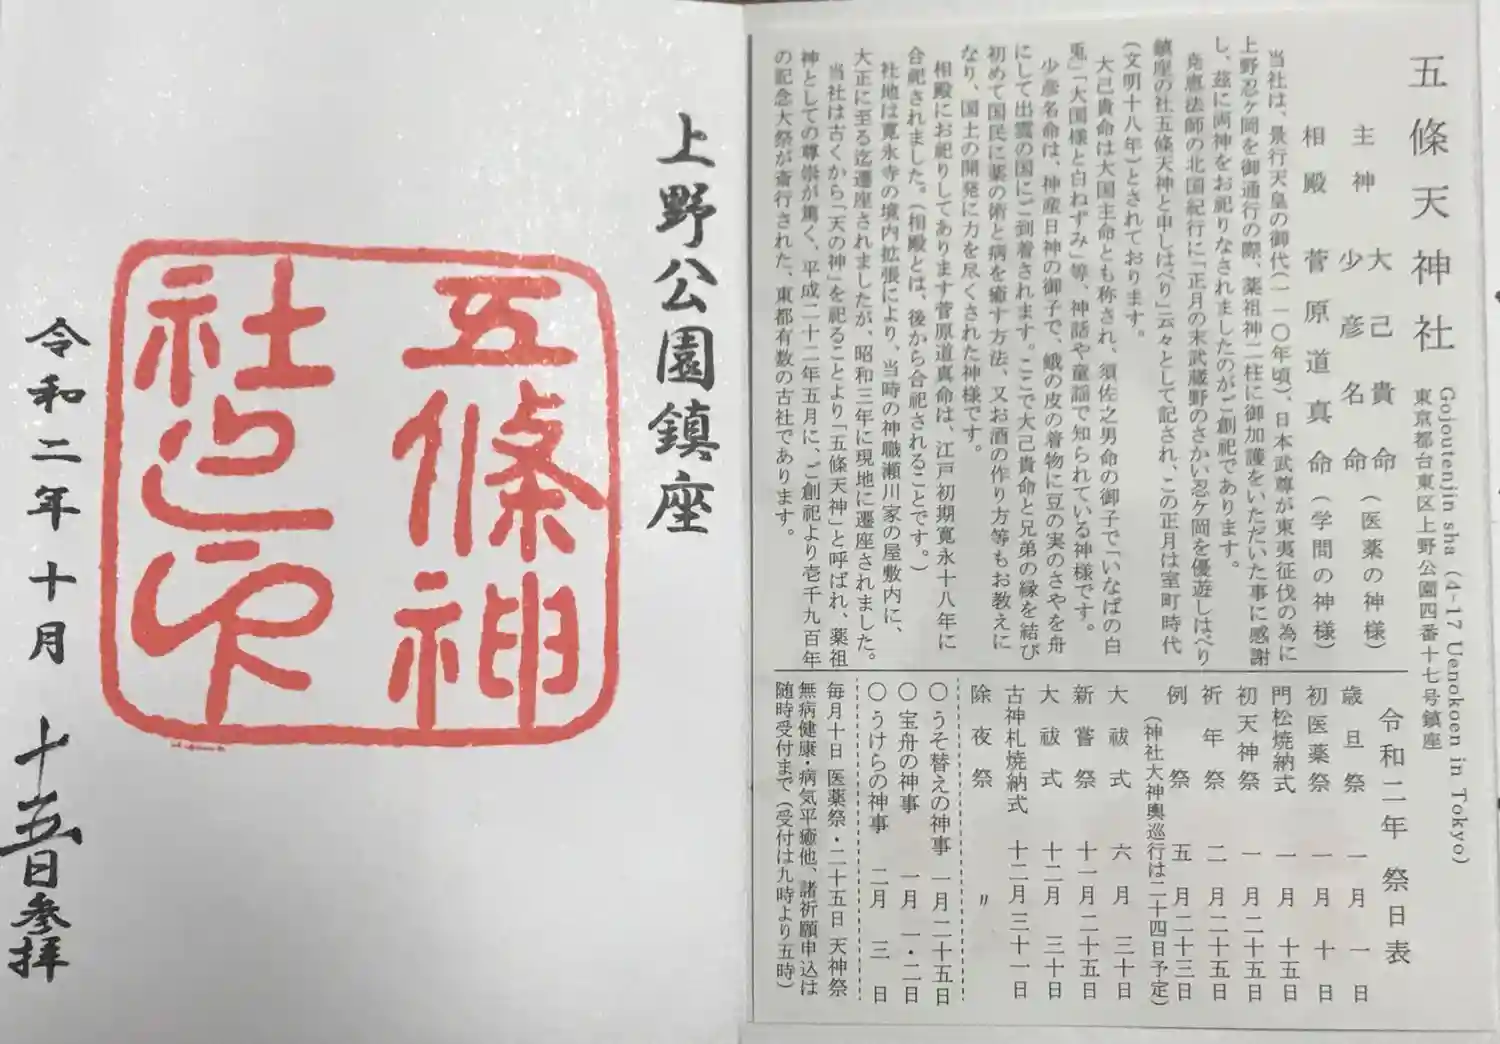 五條天神社
Gojoutenjin sha (4-17 Uenokoen in Tokyo)
東京都台東区上野公園四番十七号鎮座
主神 大己貴命
少彦名命 (医薬の神様)
相殿 菅原道真命 (学問の神様)
当社は、景行天皇の御代(一一〇年頃)、日本武尊が東夷征伐の為に
上野忍ケ岡を御通行の際、薬祖神二柱に御加護をいただいた事に感謝
し、茲に両神をお祀りなされましたのがご創祀であります。
尭恵法師の北国紀行に「正月の末武蔵野のさかい忍ケ岡を優遊しはべり
鎮座の社五條天神と申しはべり」云々として記され、この正月は室町時代
(文明十八年)とされております。
大己貴命は大国主命とも称され、須佐之男命の御子で「いなばの白
兎」「大国様と白ねずみ」等、神話や童謡で知られている神様です。
少彦名命は、神産日神の御子で、蛾の皮の着物に豆の実のさやを舟
にして出雲の国にご到着されます。ここで大己貴命と兄弟の縁を結び
初めて国民に薬の術と病を癒す方法、又お酒の作り方等もお教えに
なり、国土の開発に力を尽くされた神様です。
相殿にお祀りしてあります菅原道真命は、江戸初期寛永十八年に
合祀されました。(相殿とは、後から合祀されることです。)
社地は寛永寺の境内拡張により、当時の神職瀬川家の屋敷内に、
大正に至る迄遷座されましたが、昭和三年に現地に遷座されました。
当社は古くから「天の神」を祀ることより「五條天神」と呼ばれ、薬祖
神としての尊崇が篤く、平成二十二年五月に、ご創祀より壱千九百年
の記念大祭が斎行された、東都有数の古社であります。
令和二年 祭日表
歳旦祭 一月 一日
初医薬祭 一月 十日
門松焼納式 一月 十五日
初天神祭 一月二十五日
祈年祭 二月二十五日
例祭 五月二十三日
(神社大神輿巡行は二十四日予定)
大祓式 六月 三十日
新嘗祭 十一月二十五日
大祓式 十二月 三十日
古神札焼納式 十二月三十一日
除夜祭 〃
〇うそ替えの神事 一月二十五日
〇宝舟の神事 一月 一・二日
〇うけらの神事 二月 三日
毎月十日 医薬祭・二十五日 天神祭
無病健康・病気平癒他、諸祈願申込は
随時受付まで(受付は九時より五時)
上野公園鎮座
五條神
社之印
令和二年十月 十五日参拝